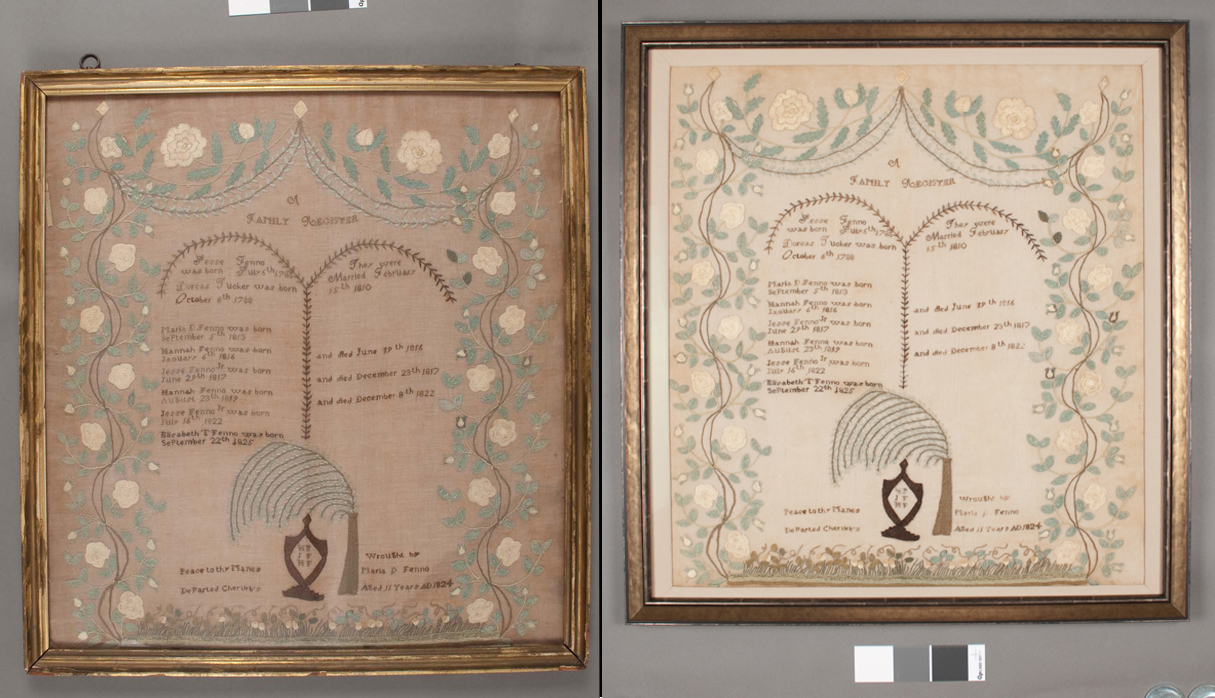 A
FAMILY REGISTER
Jesse Fenno
was born July 5th
Dorcas Tucker was born
October 6th 1788
They were
Married February
15th 1810
Maria D Fenno was born
September 5th 1813
Hannah Fenno was born
January 6th 1816
and died June 19th 1816
Jesse Fenno Jr was born
June 29th 1817
and died December 23th 1817
Hannah Fenno was born
August 23th 1819
and died December 8th 1822
Jesse Fenno Jr was born
July 16th 1822
Elizabeth T Fenno was born
September 22th 1825
Peace to thy Manes
Departed Cherubs
Wrought by
Maria D Fenno
Aged 11 Years AD 1824
A
FAMILY REGISTER
Jesse Fenno
was born July 5th
Dorcas Tucker was born
October 6th 1788
They were
Married February
15th 1810
Maria D Fenno was born
September 5th 1813
Hannah Fenno was born
January 6th 1816
and died June 19th 1816
Jesse Fenno Jr was born
June 29th 1817
and died December 23th 1817
Hannah Fenno was born
August 23th 1819
and died December 8th 1822
Jesse Fenno Jr was born
July 16th 1822
Elizabeth T Fenno was born
September 22th 1825
Peace to thy Manes
Departed Cherubs
Wrought by
Maria Fenno
Aged 11 Years AD 1824